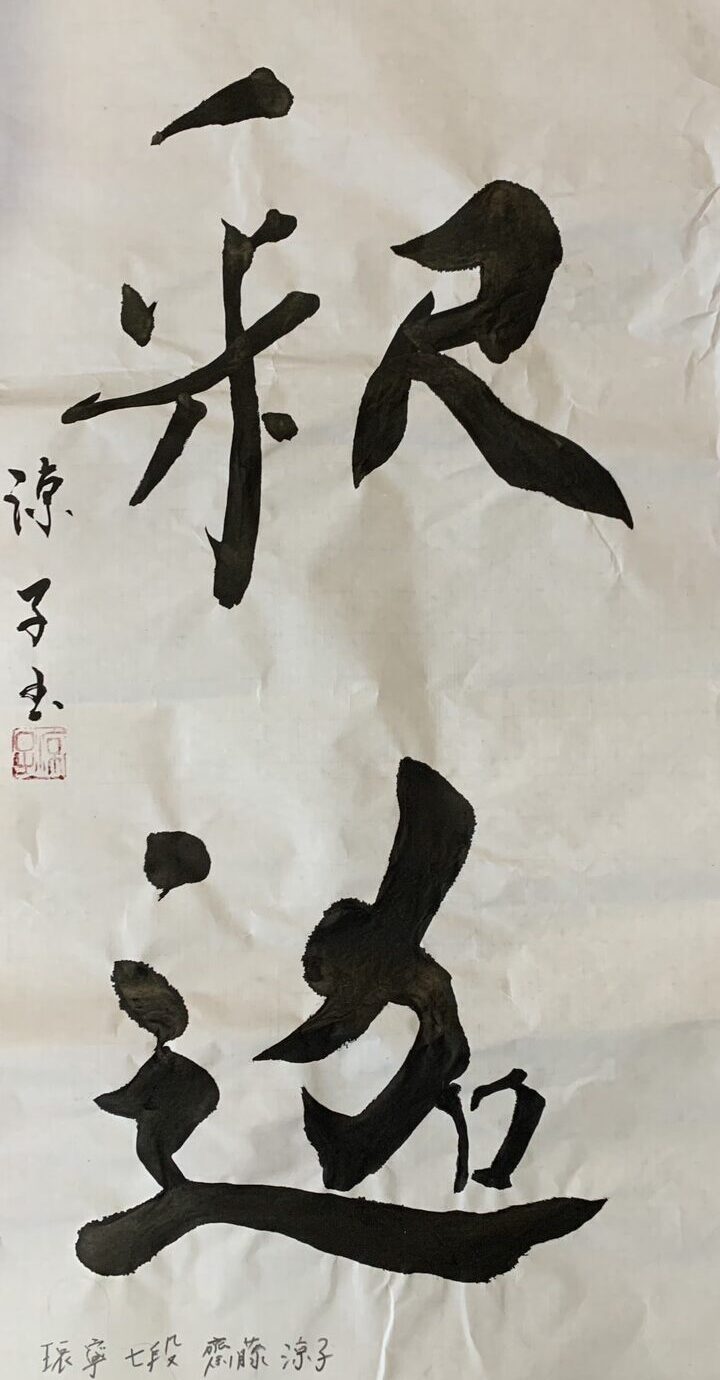 釈迦
涼子書
涼子
寧 七段 齋藤 涼子